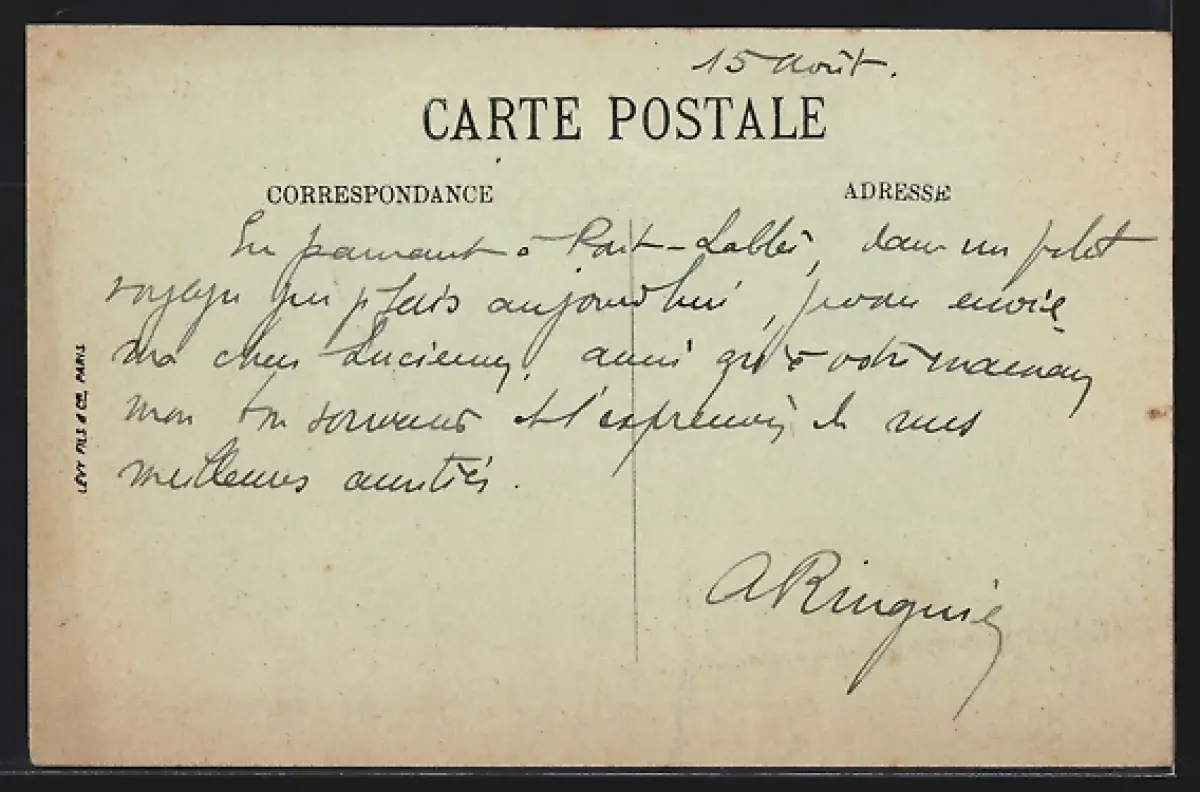 15 Août.
CARTE POSTALE
CORRESPONDANCE
ADRESSE
En passant à Pont-Labbé, dans un petit
voyage que je fais aujourd'hui, je vous envoie
ma chère Lucienne, ainsi qu'à votre maman
mon bon souvenir et l'expression de mes
meilleures amitiés.
LÉVY FILS & Cie, PARIS